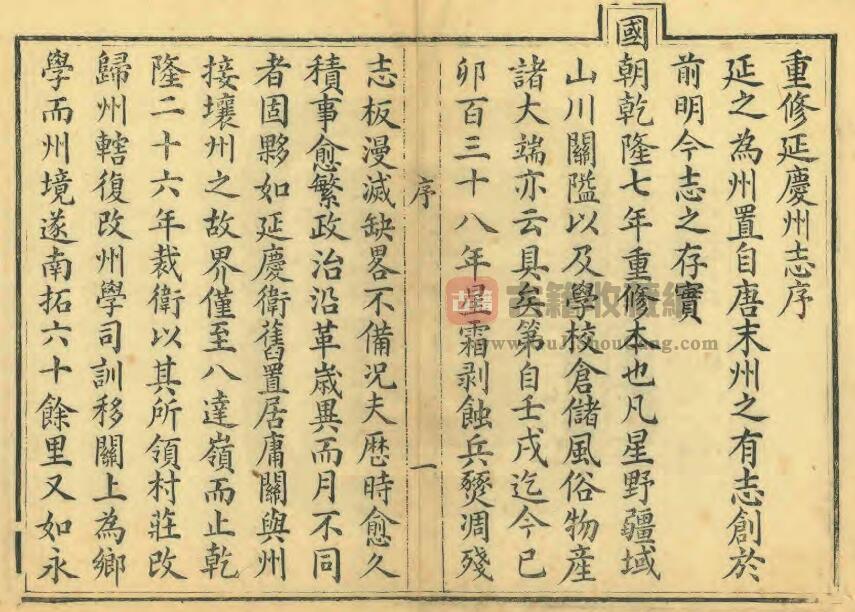 重修延慶州志序
延之為州置自唐末州之有志創於
前明今志之存實
國朝乾隆七年重修本也凡星野疆域
山川關隘以及學校倉儲風俗物產
諸大端亦云具矣第自壬戌迄今己
卯百三十八年星霜剥蝕兵燹凋殘
序
一
志板漫滅缺畧不備況夫歷時愈久
積事愈繁政治沿革歲異而月不同
者固夥如延慶衛舊置居庸關與州
接壤州之故界僅至八達嶺而止乾
隆二十六年裁衛以其所領村莊改
歸州轄復改州學司訓移關上為鄉
學而州境遂南拓六十餘里又如永
古籍 古籍收藏網
www.gujishoucang.com